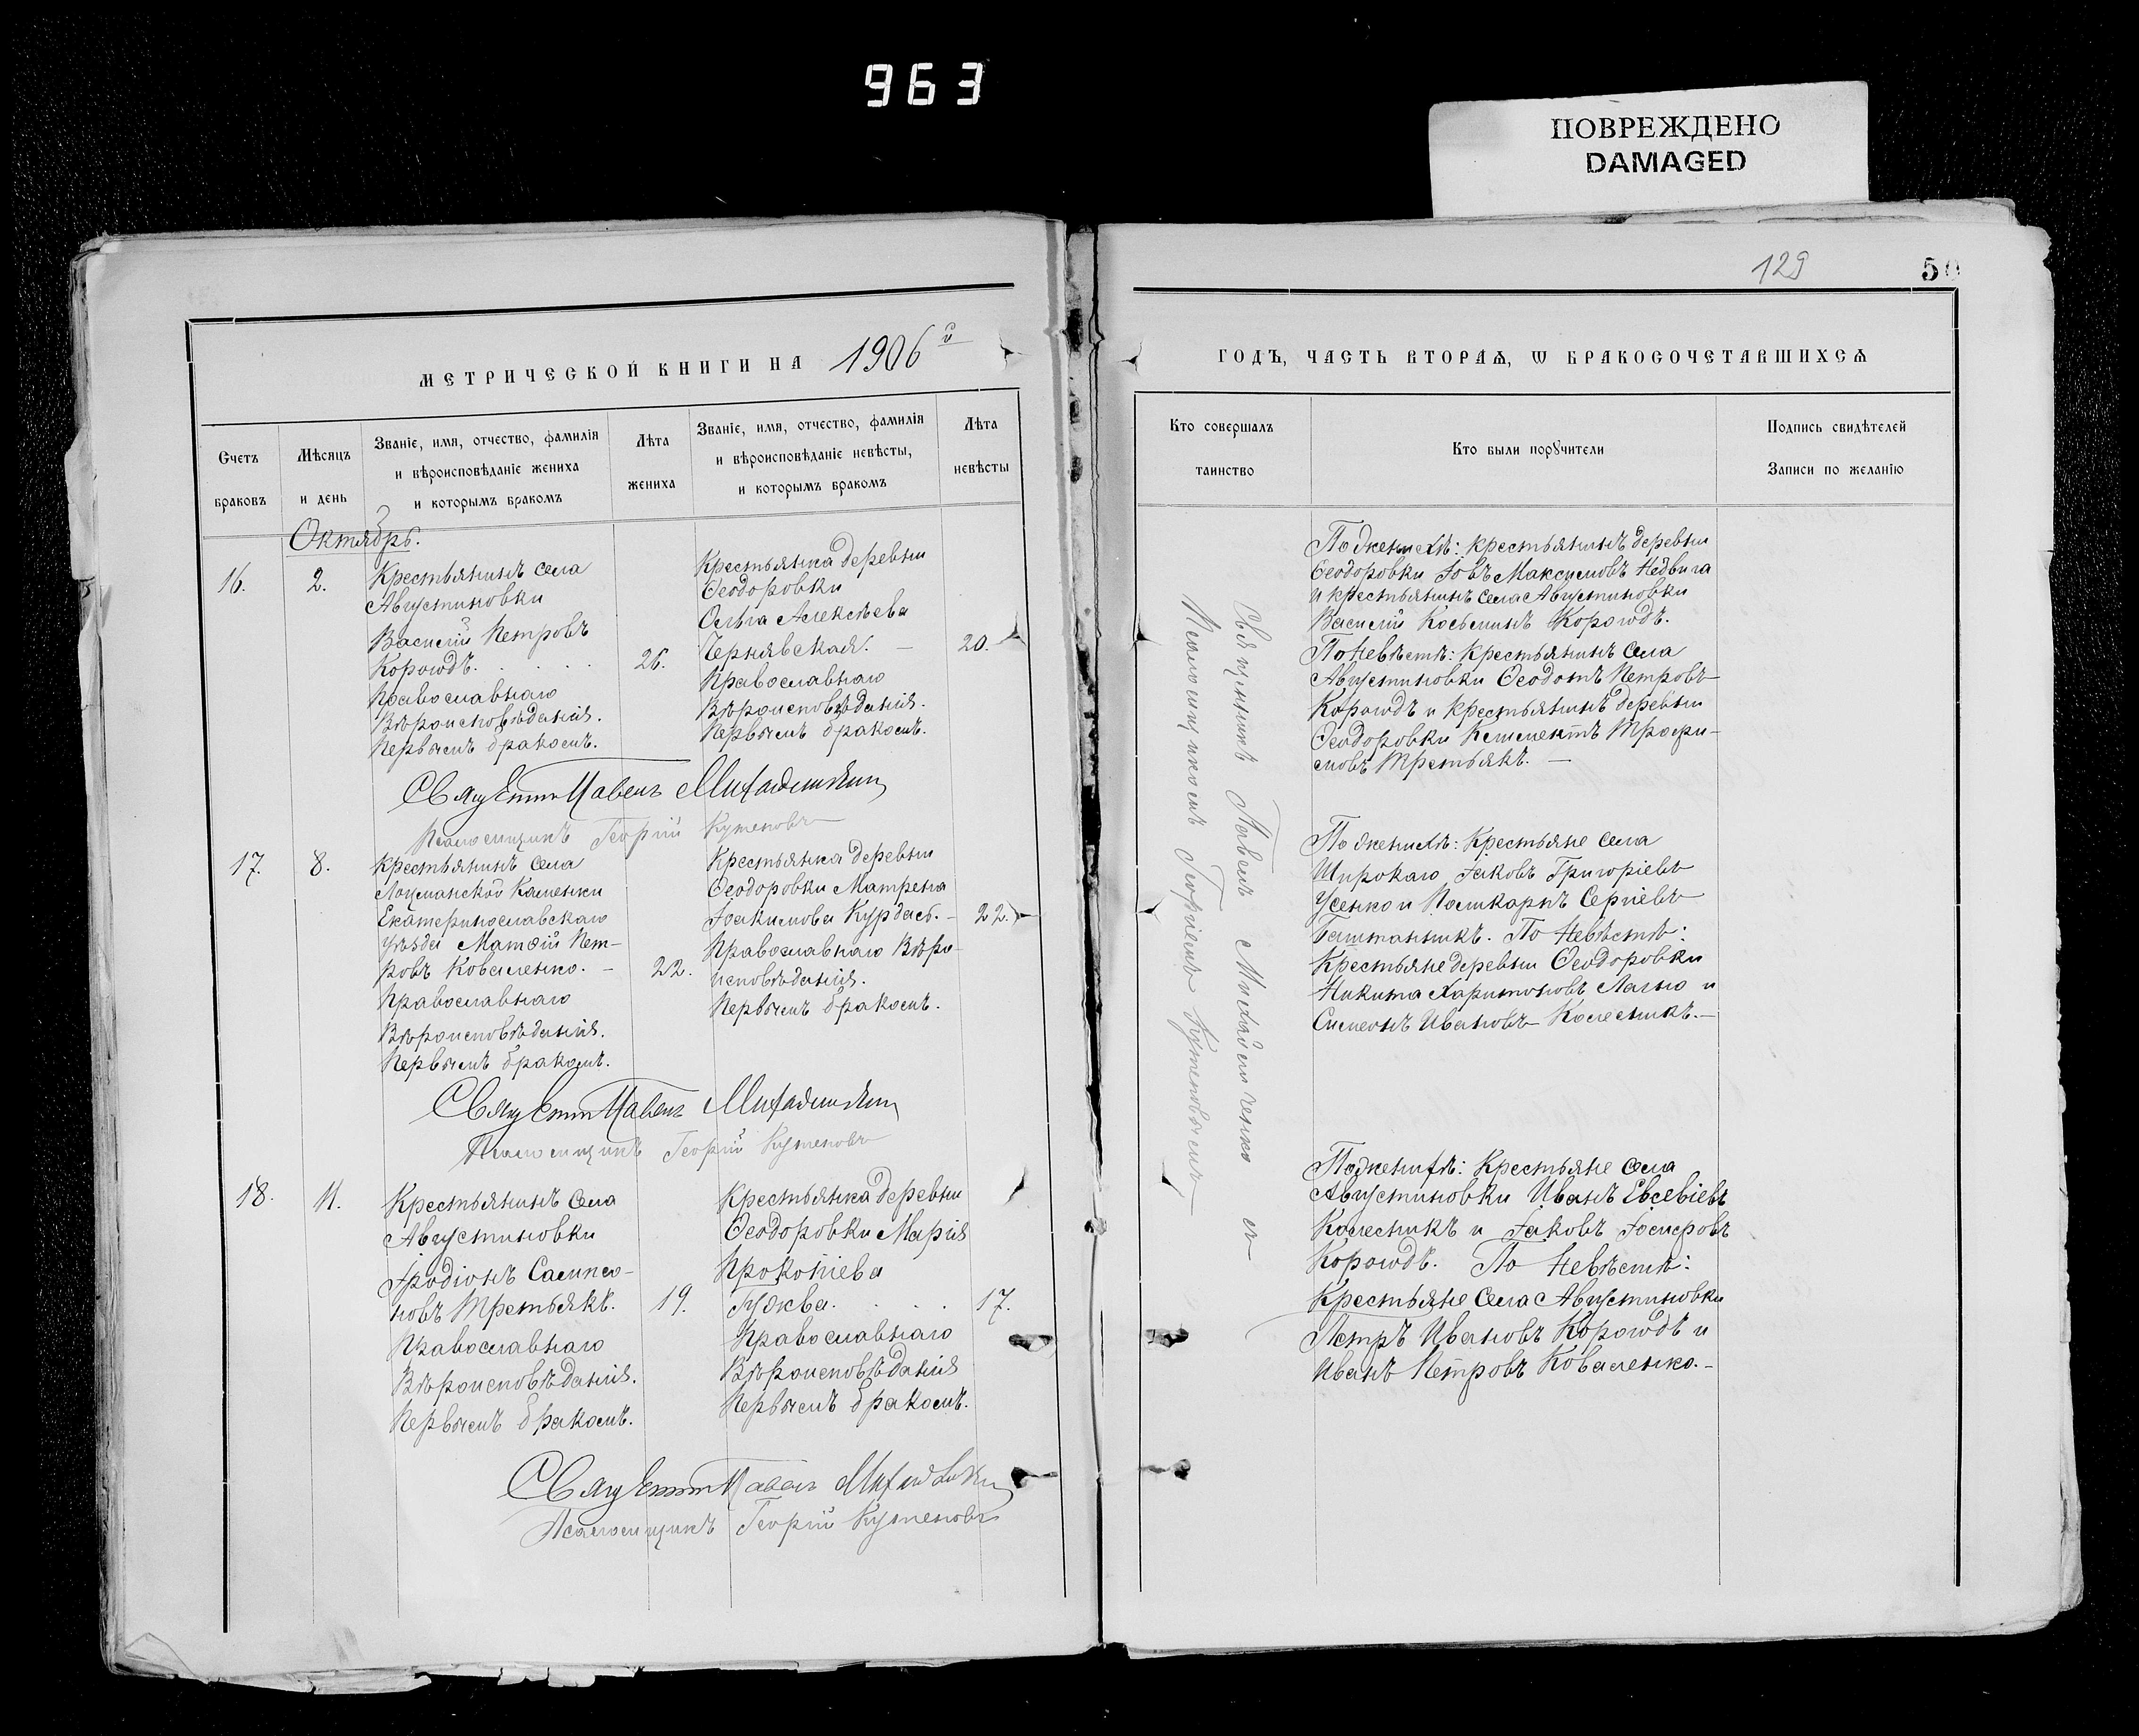 963
ПОВРЕЖДЕНО
DAMAGED
МЕТРИЧЕСКОЙ КНИГИ НА 1906й
Счетъ браковъ
Мѣсяцъ и день
Званіе, имя, отчество, фамилія
и вѣроисповѣданіе жениха
и которымъ бракомъ
Лѣта
жениха
Званіе, имя, отчество, фамилія
и вѣроисповѣданіе невѣсты,
и которымъ бракомъ
Лѣта
невѣсты
Октябрь.
16.
2.
Крестьянинъ села
Августиновки
Василій Петровъ
Короюдъ. . . . .
Православнаго
Вѣроисповѣданія.
Первымъ бракомъ.
26.
Крестьянка деревни
Ѳеодоровки
Ольга Алексѣева
Чернявская. —
Православнаго
Вѣроисповѣданія.
Первымъ бракомъ.
20.
Священ Павелъ
Псаломщикъ Георгій Кутеповъ
17.
8.
Крестьянинъ села
Лоцманской Каменки
Екатеринославскаго
уѣзда Матѳій Пет-
ровъ Коваленко. —
Православнаго
Вѣроисповѣданія.
Первымъ бракомъ.
22.
Крестьянка деревни
Ѳеодоровки Матрена
Іоакимова Курдасъ. —
Православнаго Вѣро-
исповѣданія.
Первымъ бракомъ.
22.
Священ Павелъ
Псаломщикъ Георгій Кутеповъ
18.
11.
Крестьянинъ села
Августиновки
Іродіонъ Сампсо-
новъ Третьякъ.
Православнаго
Вѣроисповѣданія.
Первымъ бракомъ.
19.
Крестьянка деревни
Ѳеодоровки Марія
Прокопіева
Гужва. . . .
Православнаго
Вѣроисповѣданія
Первымъ бракомъ.
17.
Священ Павелъ
Псаломщикъ Георгій Кутеповъ
129
50
ГОДЪ, ЧАСТЬ ВТОРАѦ, Ѡ БРАКОСОЧЕТАВШИХСѦ
Кто совершалъ
таинство
Кто были порꙋчители
Подпись свидѣтелей
Записи по желанію
Священникъ Павелъ Михайличенко съ
Псаломщикомъ Георгіемъ Кутеповымъ
По женихѣ: крестьянинъ деревни
Ѳеодоровки Іовъ Максимовъ Недвига
и крестьянинъ села Августиновки
Василій Косьминъ Короюдъ.
По Невѣстѣ: Крестьянинъ села
Августиновки Ѳеодотъ Петровъ
Короюдъ и крестьянинъ деревни
Ѳеодоровки Климентъ Трофи-
мовъ Третьякъ. —
По женихѣ: Крестьяне села
Широкаго Іаковъ Григоріевъ
Усенко и Поликарпъ Сергіевъ
Баштанникъ. По Невѣстѣ:
Крестьяне деревни Ѳеодоровки
Никита Харитоновъ Лагно и
Симеонъ Ивановъ Колесникъ. —
По женихѣ: Крестьяне села
Августиновки Иванъ Евсевіевъ
Колесникъ и Іаковъ Іосифовъ
Короюдъ. По Невѣстѣ:
Крестьяне села Августиновки
Петръ Ивановъ Короюдъ и
Иванъ Петровъ Коваленко. —